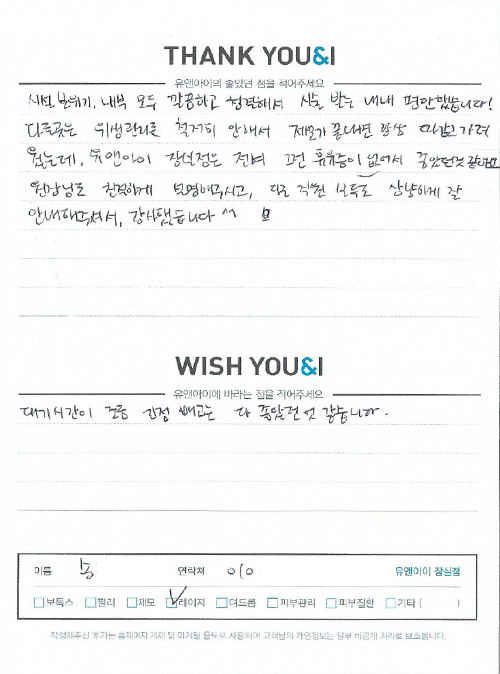 THANK YOU&I
유앤아이의 좋았던 점을 적어주세요
시설 분위기, 내부 모두 깔끔하고 청결해서 시술 받는 내내 편안했습니다!
다른곳은 위생관리를 철저히 안해서 제모가 끝나면 항상 따갑고 가려
웠는데, 유앤아이 잠실점은 전혀 그런 후유증이 없어서 좋았던것 같아요
원장님도 친절하게 설명해주시고, 다른 직원 분들도 상냥하게 잘
안내해주셔서, 감사했습니다 ^^
WISH YOU&I
유앤아이에 바라는 점을 적어주세요
대기시간이 조금 긴점 빼고는 다 좋았던 것 같습니다.
이름 홍 연락처 010 유앤아이 잠실점
보톡스 필러 제모 레이저 여드름 피부관리 피부질환 기타 ( )
작성해주신 후기는 홈페이지 게재 및 마케팅 용도로 사용되며 고객님의 개인정보는 일부 비공개 처리로 보호됩니다.